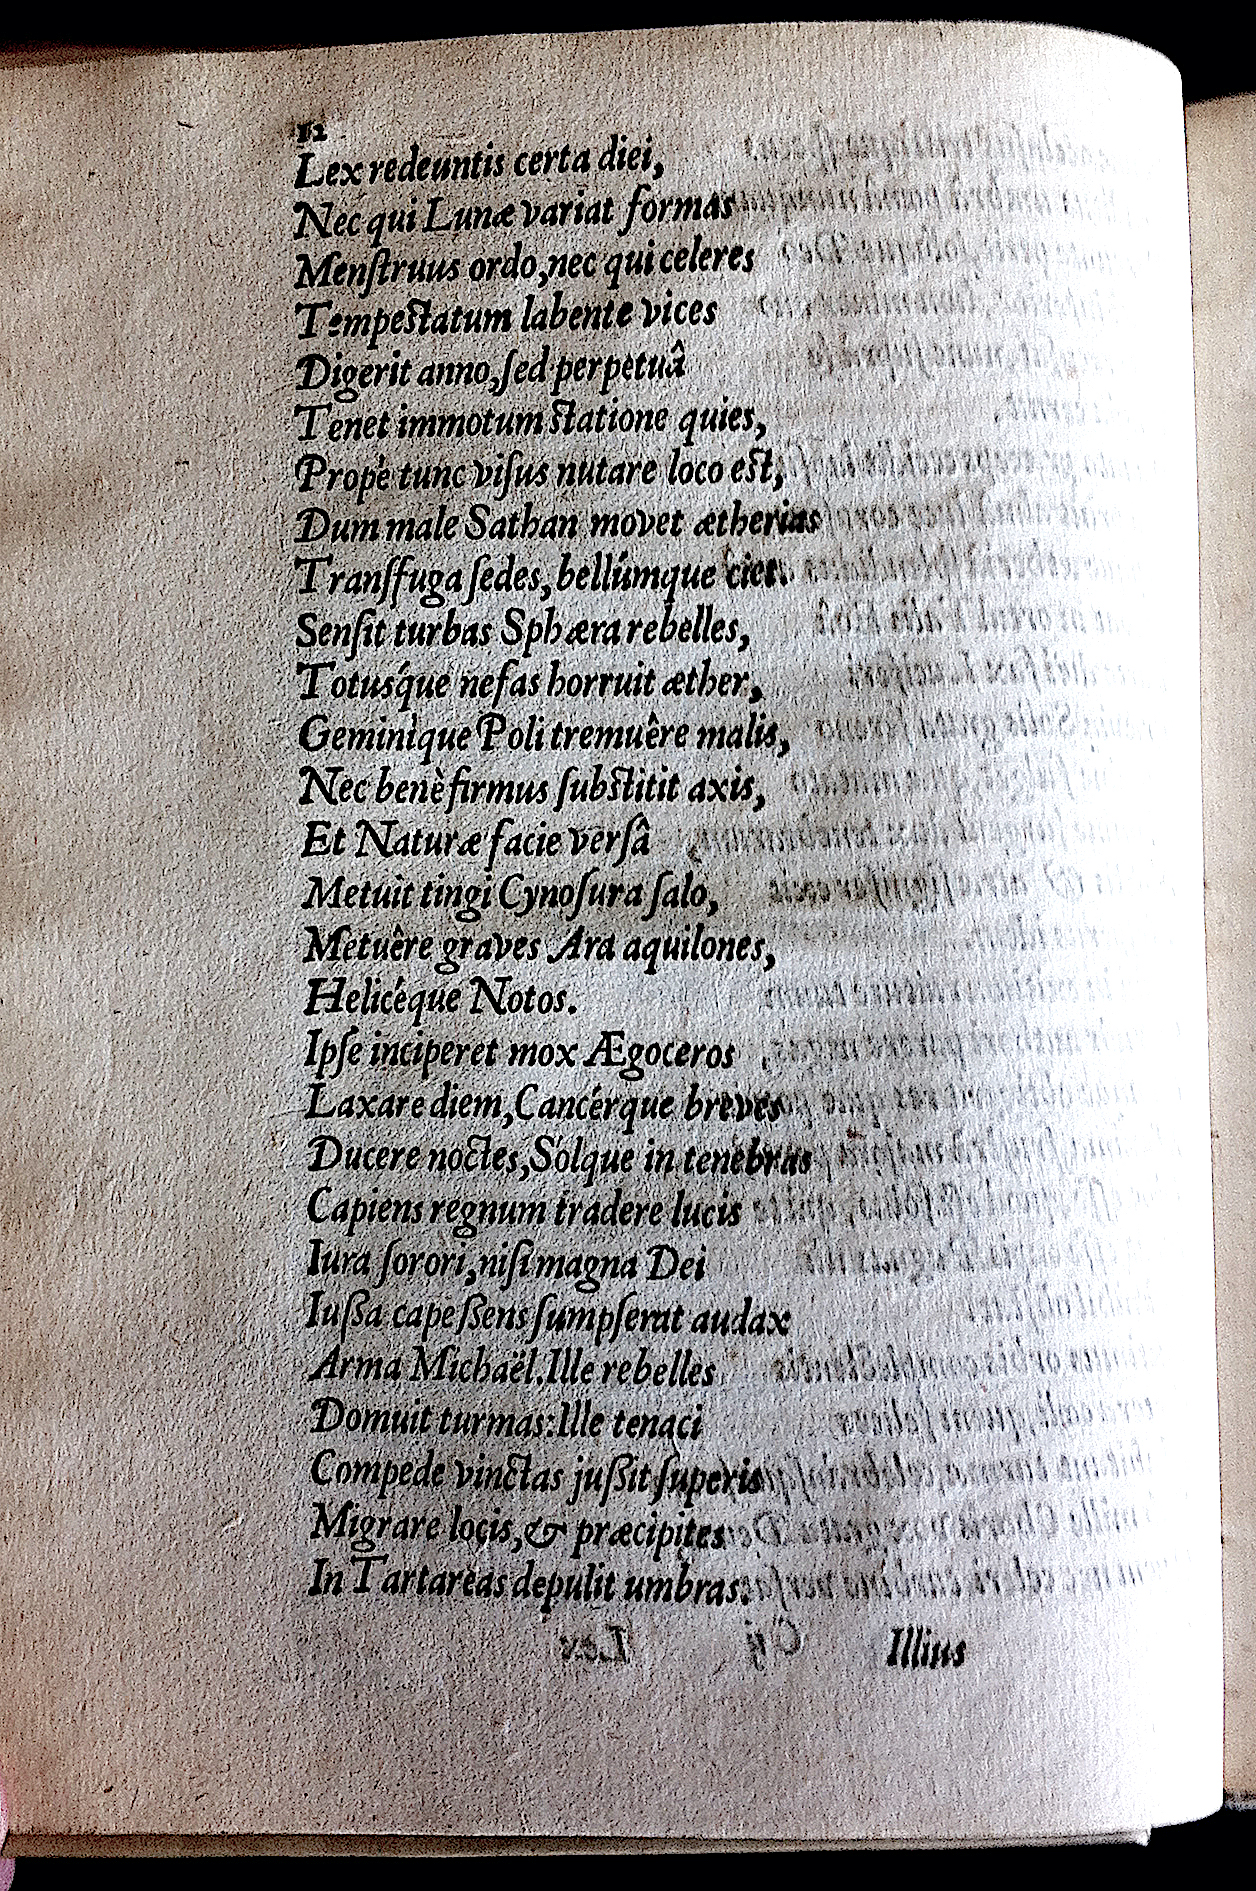 12
Lex redeuntis certa diei,
Nec qui Lunæ variat formas
Menſtruus ordo, nec qui celeres
Tempeſtatum labente vices
Digerit anno, ſed perpetuâ
Tenet immotum ſtatione quies,
Propè tunc viſus nutare loco eſt,
Dum male Sathan movet ætherias
Tranſfuga ſedes, bellúmque ciet.
Senſit turbas Sphæra rebelles,
Totusq́ue nefas horruit æther,
Geminìque Poli tremuêre malis,
Nec benè firmus ſubſtitit axis,
Et Naturæ facie verſâ
Metuìt tingi Cynoſura ſalo,
Metuêre graves Ara aquilones,
Helicéque Notos.
Ipſe inciperet mox Ægoceros
Laxare diem, Cancérque breves
Ducere noctes, Sólque in tenebras
Capiens regnum tradere lucis
Iura ſorori, niſi magna Dei
Iuſſa capeſſens ſumpſerat audax
Arma Michaël. Ille rebelles
Domuit turmas: Ille tenaci
Compede vinctas juſſit ſuperis
Migrare locis, & præcipites
In Tartareas depulit umbras.
Illius